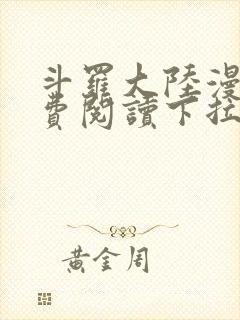 斗羅大陸漫
費閱讀下拉
黃金周